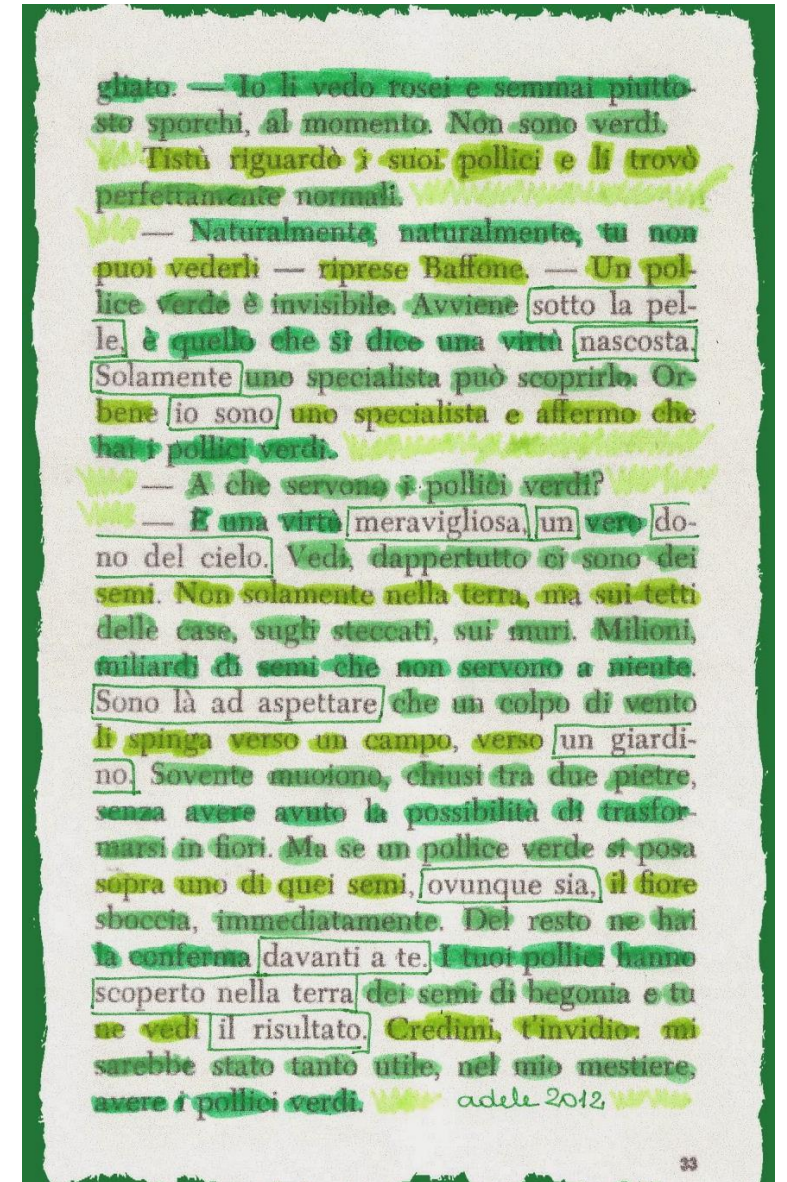 gliato. — Io li vedo rosei e semmai piutto-
sto sporchi, al momento. Non sono verdi.
Tistù riguardò i suoi pollici e li trovò
perfettamente normali.
— Naturalmente, naturalmente, tu non
puoi vederli — riprese Baffone. — Un pol-
lice verde è invisibile. Avviene sotto la pel-
le, è quello che si dice una virtù nascosta.
Solamente uno specialista può scoprirlo. Or-
bene io sono uno specialista e affermo che
hai i pollici verdi.
— A che servono i pollici verdi?
— È una virtù meravigliosa, un vero do-
no del cielo. Vedi, dappertutto ci sono dei
semi. Non solamente nella terra, ma sui tetti
delle case, sugli steccati, sui muri. Milioni,
miliardi di semi che non servono a niente.
Sono là ad aspettare che un colpo di vento
li spinga verso un campo, verso un giardi-
no. Sovente muoiono, chiusi tra due pietre,
senza avere avuto la possibilità di trasfor-
marsi in fiori. Ma se un pollice verde si posa
sopra uno di quei semi, ovunque sia, il fiore
sboccia, immediatamente. Del resto ne hai
la conferma davanti a te. I tuoi pollici hanno
scoperto nella terra dei semi di begonia e tu
ne vedi il risultato. Credimi, t'invidio: mi
sarebbe stato tanto utile, nel mio mestiere,
avere i pollici verdi. adele 2012
33